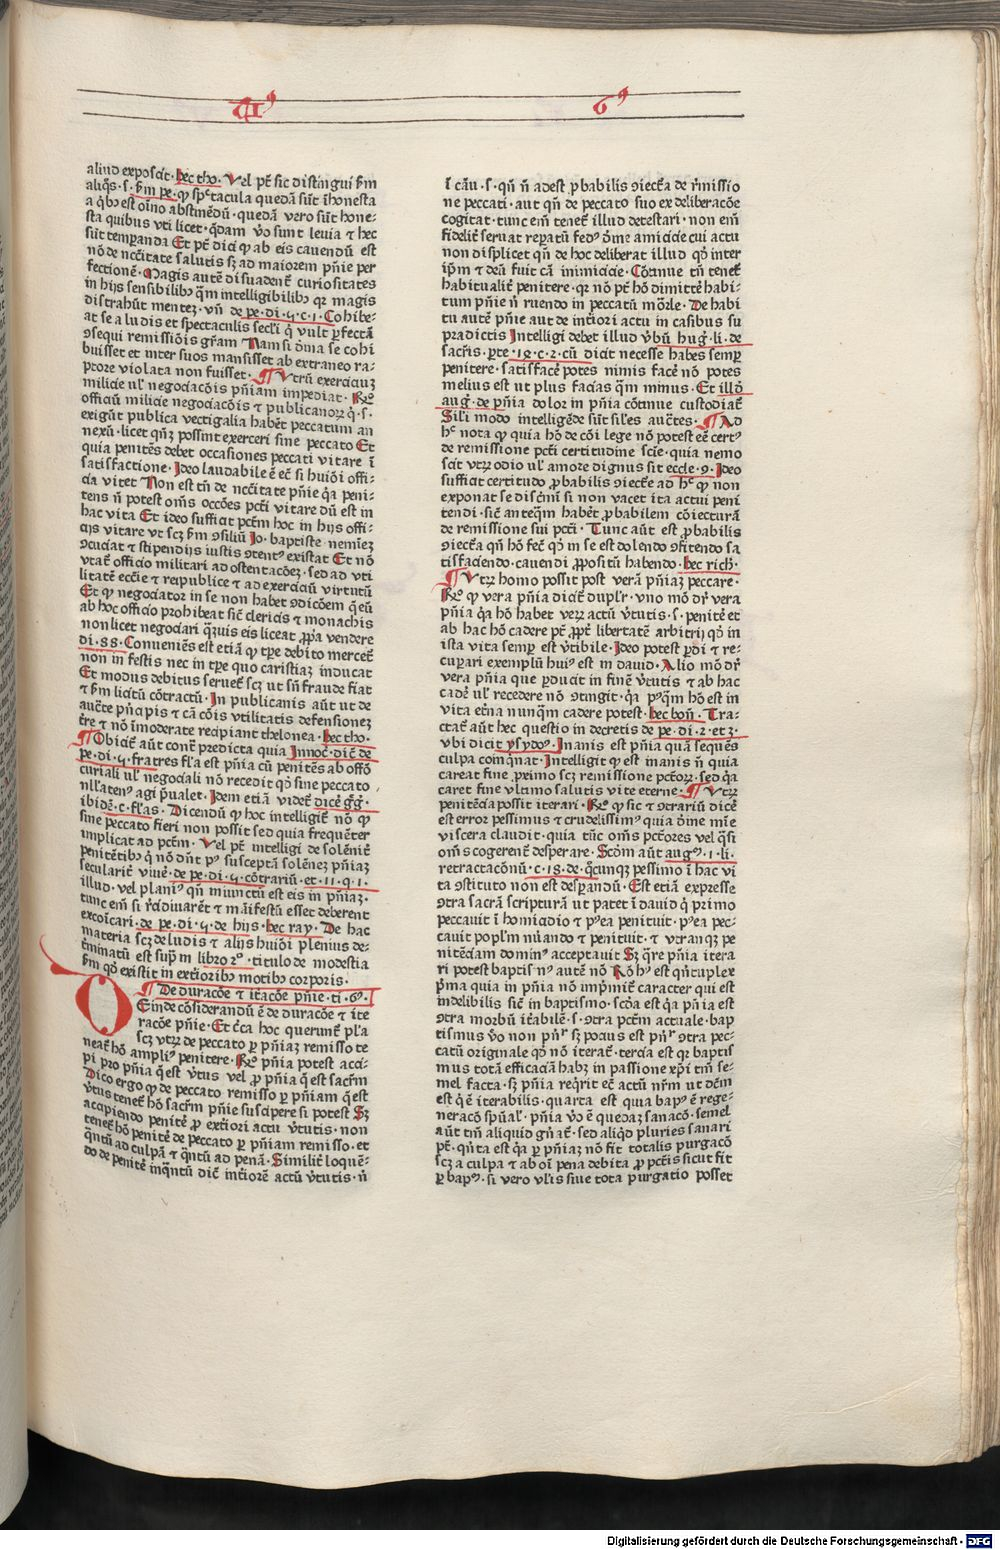 aliud exposcit· hec tho· Vel pt̄ sic distingui ẜm
aliq̄s· s· ẜm pe· ꝙ spc̄tacula quedā sūt īhonesta
a qͥbꝰ est oīno abstinēdū· quedā vero sūt hone⸗
sta quibus vti licet· qͣdam vo᷒ sunt leuia ⁊ hec
sūt temperanda Et pt̄ dici ꝙ ab eis cauendū est
nō de nc̄citate salutis sꝫ ad maiorem pn̄ie per
fectionē· Magis autē disuadent᷑ curiositates
in hijs sensibilibꝰ qͣm intelligibilibꝰ qꝛ magis
distrahūt mentez· vn̄ de pe· di· 5· c· 1· Cohibe⸗
at se a ludis et spectaculis secl̓i qͥ vult perfectā
ꝯsequi remissiōis gr̄am Nam si dīna se cohi
buisset et inter suos mansisset ab extraneo ra⸗
ptore violata non fuisset· ¶ Vtrū exerciciuꝫ
milicie ul̓ negociacōis pn̄iam impediat· Rͦ
officiū milicie negociacōis ⁊ publicanoꝝ qͥ· s·
exigūt publica vectigalia habēt peccatum an
nexū· licet qn̄ꝫ possint exerceri sine peccato Et
quia penitēs debet occasiones peccati vitare ī
satisfactione· Ideo laudabile ē ec̄ si huiōi offi⸗
cia vitet Non est tn̄ de nc̄citate pn̄ie qͣa peni⸗
tens n̄ potest oms̄ occōes pctī vitare dū est in
hac vita Et ideo sufficit pctm̄ hoc in hijs offi⸗
cijs vitare vt scꝫ ẜm ꝯsiliū Jo· baptiste nemīeꝫ
ꝯcuciat ⁊ stipendijs iustis ꝯtentꝰ existat Et nō
vtat᷑ officio militari ad ostentacōeꝫ· sed ad vti
litatē eccīe ⁊ reipublice ⁊ ad exerciciū virtutū
Et ꝙ negociator in se non habet ꝯdicōem qͣ eū
ab hoc officio prohibeat sic̄ clericis ⁊ monachis
non licet negociari qͣuis eis liceat propͥa vendere
di· 88· Conueniēs est etiā ꝙ tꝑe debito mercet᷑
non in festis nec in tꝑe quo caristiaꝫ inducat
Et modus debitus seruet᷑ scꝫ ut sn̄ fraude fiat
⁊ ẜm licitū cōtractū· In publicanis aūt ut de
auct̄e pn̄cipis ⁊ cā cōis vtilitatis defensionez
tr̄e ⁊ nō īmoderate recipiant thelonea· hec tho·
¶ Obicit᷑ aūt contͣ predicta quia Innoc̄· dic̄ de
pe· di· 5· fratres fl̓a est pn̄ia cū penitēs ab offō
curiali ul̓ negociali nō recedit qͦ sine peccato
nll̓atenꝰ agi p̄ualet· Idem etiā videt᷑ dicē gͣg̓·
ibidē· c· fl̓as· Dicendū ꝙ hoc intelligit᷑ nō ꝙ
sine peccato fieri non possit sed quia frequēter
implicat ad pctm̄· Vel pt̄ intelligi de solēnit᷑
penitētibꝰ qͥ nō dn̄t pꝰ susceptā solēneꝫ pn̄iaꝫ
secularit᷑ viuē· de pe· di· 5· cōtrariū· et· 11· q· 1·
illud· vel planiꝰ qn̄ miunctū est eis in pn̄iaꝫ·
tunc em̄ si rͤdiuarēt ⁊ māifestū esset deberent
excoīcari· de pe· di· 5· de hijs· hec ray· De hac
materia scꝫ de ludis ⁊ alijs huiōi plenius de⸗
t᷑minatū est supͣm libro 2ͦ· titulo de modestia
ẜm qͦ existit in ext᷑ioribꝰ motibꝰ corporis·
¶ De duracōe ⁊ it᷑acōe pn̄ie· ti· 6ꝰ·
Einde cōsiderandū ē de duracōe ⁊ ite
racōe pn̄ie· Et cͥca hoc querunt᷑ pl̓a
scꝫ vtrꝫ de peccato ꝑ pn̄iaꝫ remisso te
neat᷑ hō ampliꝰ penitere· Rͦ pn̄ia potest acci⸗
pi pro pn̄ia qͣ est vt᷑us vel ꝓ pn̄ia qͣ est sacr̄m
Dico ergo ꝙ de peccato remisso ꝑ pn̄iam qͣ est
vt᷑us tenet᷑ hō sacr̄m pn̄ie suscipere si potest Sꝫ
accipiendo penit᷑e ꝓ ext᷑iori actu vt᷑utis· non
tenet᷑ hō penit᷑e de peccato ꝑ pn̄iam remisso· et
qͣntū ad culpā ⁊ qͣntū ad penā· Similit᷑ loquē⸗
do de penit᷑e inqͣntū dic̄ int᷑iorē actū vt᷑utis· n̄
ī cāu· s· qn̄ n̄ adest ꝓbabilis ꝯiect᷑a de rͤmissio
ne peccati· aut qn̄ de peccato suo ex deliberacōe
cogitat· tunc em̄ tenet᷑ illud detestari· non em̄
fidelit᷑ seruat reꝑatū fedꝰ dīne amicicie cui actu
non displicet qn̄ de hoc deliberat illud qͦ inter
ip̄m ⁊ deū fuit cā inimicicie· Cōtinue tn̄ tenet᷑
habitualit᷑ penitere· qꝛ nō pt̄ hō dimitt᷑e habi⸗
tum pn̄ie n̄ ruendo in peccatū mōle· De habi
tu autē pn̄ie aut de int᷑iori actu in casibus su
pradictis Intelligi debet illud vb᷑ū hug̓· li· de
sacr̄is· pͬte· 18· c· 2· cū dicit necesse habes semꝑ
penitere· satisface᷑ potes nimis face᷑ nō potes
melius est ut plus facias qͣm minus· Et illō
aug̓· de pn̄ia dolor in pn̄ia cōtinue custodiat᷑
Sil̓i modo intelligēde sūt sil̓es auct̄es· ¶ Ad
hͨ nota ꝙ quia hō de cōi lege nō potest eē certꝰ
de remissione pctī certitudine scīe· quia nemo
scit vtꝝ odio ul̓ amore dignus sit eccle· 9· Ideo
sufficit certitudo ꝓbabilis ꝯiect᷑e ad hͨ ꝙ non
exponat se disc᷑mi si non vacet ita actui peni
tendi· sic̄ anteqͣm habet᷑ ꝓbabilem cōiecturā
de remissione sui pctī· Tunc aūt est ꝓbabilis
ꝯiect᷑a qn̄ hō fec̄ qͦ in se est dolendo ꝯfitendo sa
tisfaciendo· cauendi ꝓpositū habendo· hec rich·
¶ Vtꝝ homo possit post verā pn̄iaꝫ peccare·
Rͦ ꝙ vera pn̄ia dicit᷑ dupl̓r· vno mō dr̄ vera
pn̄ia qͣa hō habet verꝝ actū vt᷑utis· s· penite᷑ et
ab hac hō cadere pt̄ ꝓpt᷑ libertatē arbitrij qͦ in
ista vita semꝑ est vt᷑ibile· Ideo potest ꝑdi ⁊ re⸗
cuꝑari exemplū huiꝰ est in dauid· Alio mō dr̄
vera pn̄ia que ꝑducit in finē vt᷑utis ⁊ ab hac
cade᷑ ul̓ recedere nō ꝯtingit· qͣa pꝰqͣm hō est in
vita et᷑na nunqͣm cadere potest· hec bon̄· Tra⸗
ctat᷑ aūt hec questio in decretis de pe· di· 2· et 3·
vbi dicit ysydoꝰ· Inanis est pn̄ia quā sequēs
culpa coinqͥnat· Intelligit᷑ ꝙ est inanis n̄ quia
careat fine ꝓximo scꝫ remissione pctōꝝ· sed qͣa
caret fine vltimo salutis vite eterne· ¶ Vtꝝ
penitēcia possit iterari· Rͦ ꝙ sic ⁊ ꝯtrariū dice᷑
est error pessimus ⁊ crudelissimꝰ quia dīne mīe
viscera claudit· quia tūc oms̄ pctōres vel qͣsi
oms̄ cogerent᷑ desperare· Scdm̄ aūt augꝰ· 1· li·
retractacōnū· c· 18· de· qͦcunqꝫ pessimo ī hac vi
ta ꝯstituto non est desperandū· Est etiā expresse
ꝯtra sacrā scripturā ut patet ī dauid qͥ primo
peccauit ī homicidio ⁊ pꝰea penituit· pꝰea pec⸗
cauit popl̓m nūando ⁊ penituit· ⁊ vtranqꝫ pe
nitēciam dominꝰ acceptauit Sꝫ qͣre pn̄ia itera
ri potest baptisꝰ autē nō Rͦ hͦꝰ est qn̄tuplex
pͥma quia in pn̄ia nō impͥmit᷑ caracter qui est
indelibilis sic̄ in baptismo· scd̄a est qͣa pn̄ia est
ꝯtra morbū it᷑abilē· s· ꝯtra pctm̄ actuale· bap
tismus vo᷒ non pn̄ʳ sꝫ pocius est pn̄ʳ ꝯtra pec⸗
catū originale qͦ nō iterat᷑· tercia est qꝛ baptis
mus totā efficaciā habꝫ in passione xp̄i tm̄ se⸗
mel facta· sꝫ pn̄ia reqͥrit ec̄ actū nr̄m ut dc̄m
est qͣ ē iterabilis· quarta est quia bapꝰ ē rege⸗
neracō spūal̓· pn̄ia vo᷒ ē quedaꝫ sanacō· semel
aūt tm̄ aliquid gn̄at᷑· sed aliqͥd pluries sanari
pt̄· qͥnta est qͣa ꝑ pn̄iaꝫ nō fit totalis purgacō
scꝫ a culpa ⁊ ab oī pena debita ꝓ pctīs sicut fit
ꝑ bapꝰ· si vero vl̓is siue tota purgatio posset
Digitalisierung gefördert durch die Deutsche Forschungsgemeinschaft · DFG